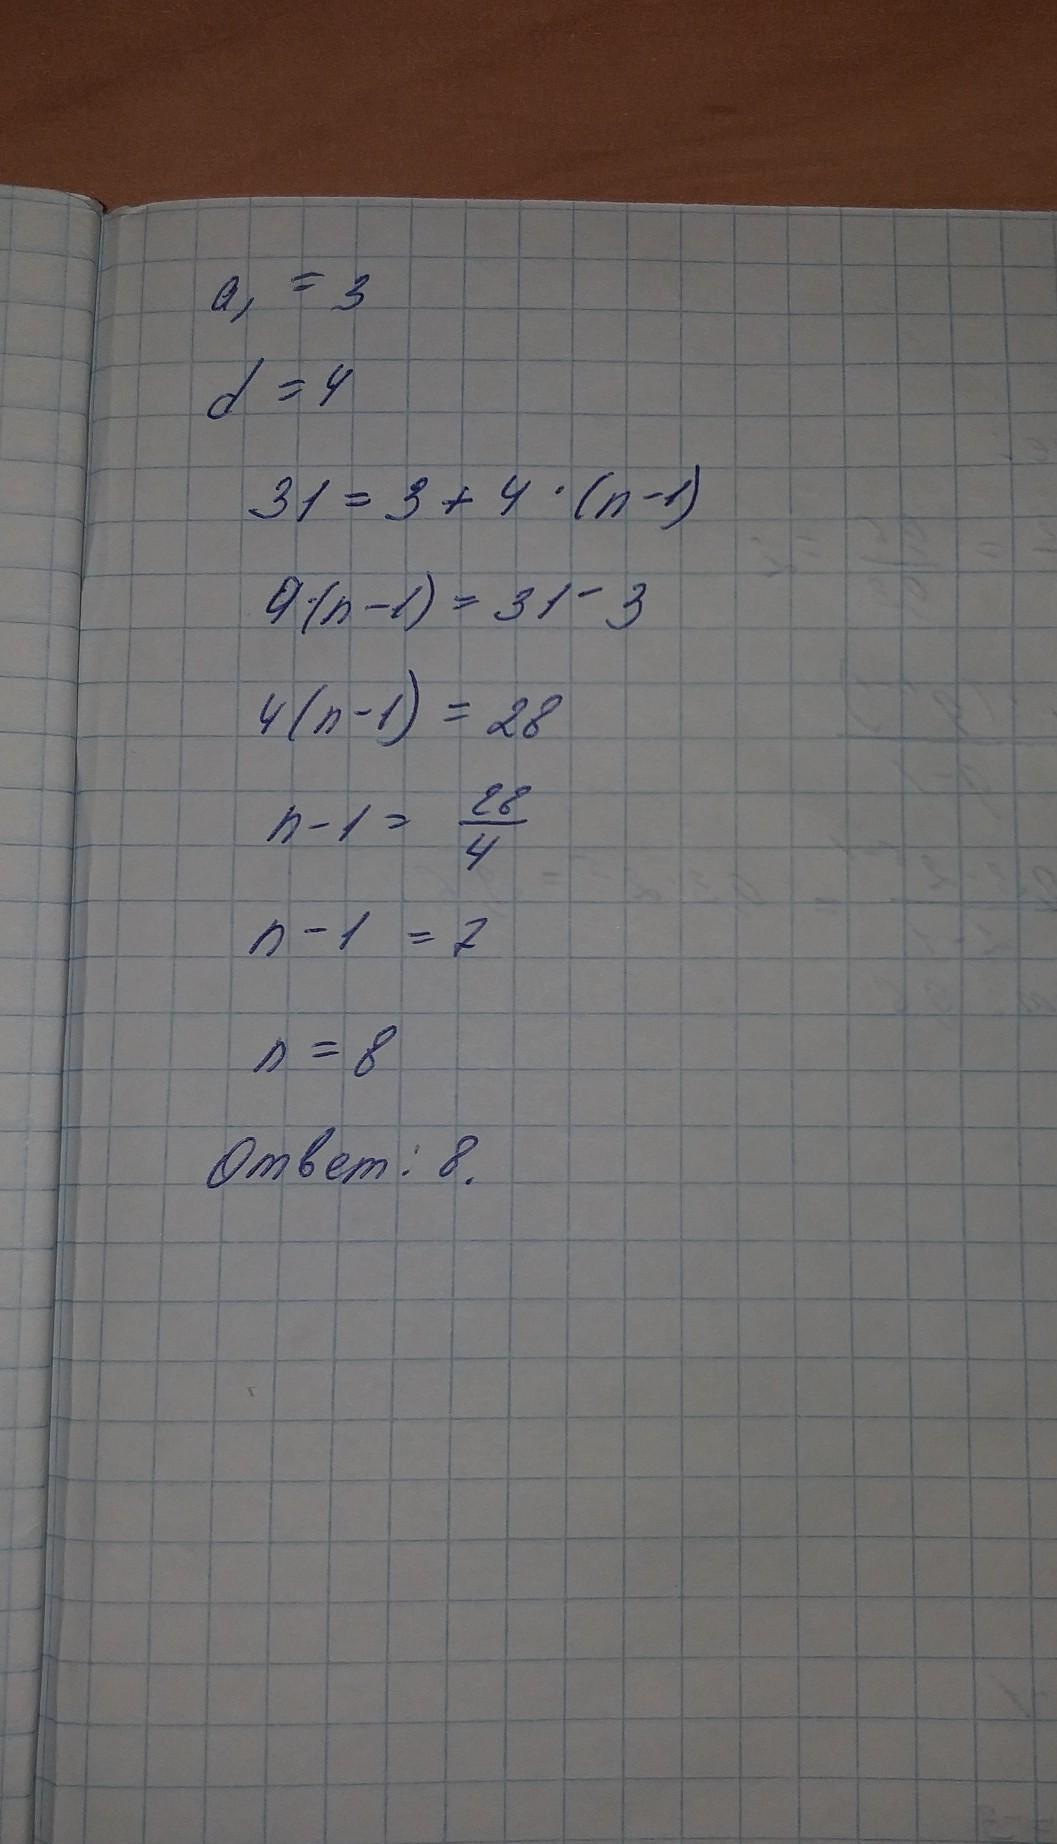 a₁ = 3
d = 4
31 = 3 + 4 · (n-1)
4·(n-1) = 31 - 3
4(n-1) = 28
n-1 = 28/4
n-1 = 7
n = 8
Ответ: 8.